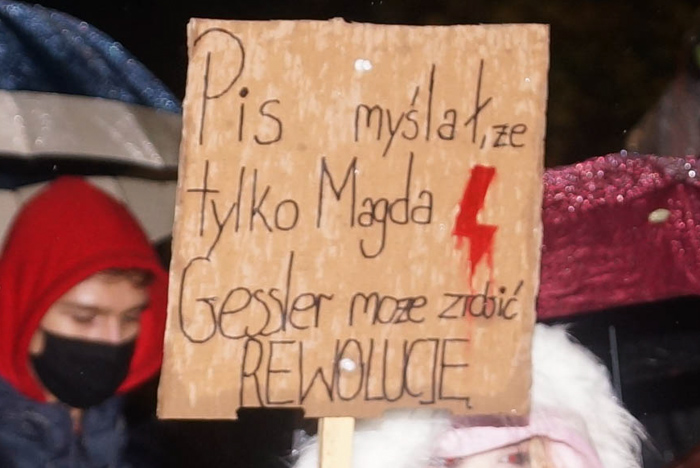 Pis myślał, że
tylko Magda
Gessler może zrobić
REWOLUCJĘ